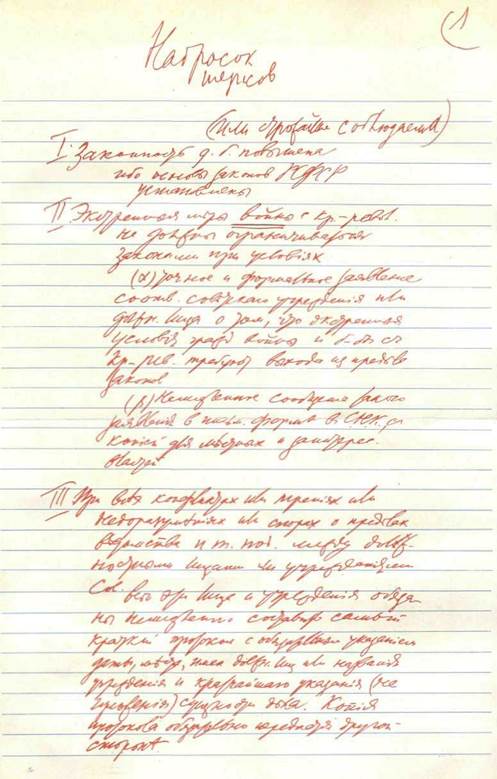 1
Набросок
тезисов
(или строжайше соблюдаема)
I. Законность д. б. повышена
ибо основы законов РСФСР
установлены
II Экстренные меры войны с к.-рев.
не должны ограничиваться
законами при условиях
(α) точное и формальное заявление
соотв. советского учреждения или
должн. лица о том, что экстренные
условия войны и с
к.-рев. требуют выхода из пределов
законов
(β) Немедленное сообщение такого
заявления в письм. форме в С.Н.К. с
копией для местных и заинтерес.
властей
III При всех конфликтах или трениях или
недоразумениях или спорах о пределах
ведомства и т. под. между долж-
ностными лицами или учреждениями
Сов. все эти лица и учреждения обяза-
ны немедленно составить самый
краткий протокол с обязательным указанием
даты, места, имен должн. лиц или названия
учреждения и кратчайшего указания (не
изложения) сущности дела. Копия
протокола обязательно передается другой
стороне.